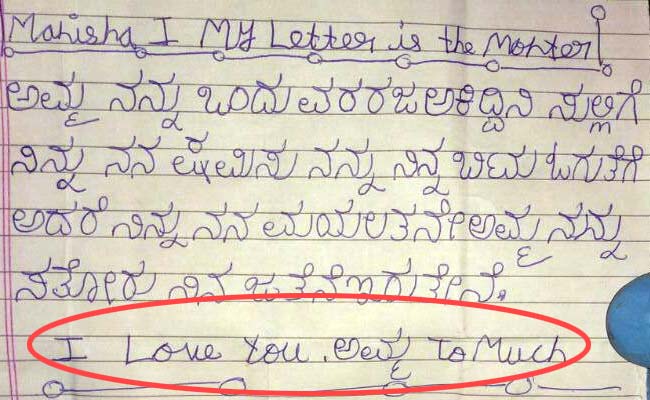 Manisha I My Letter is the Monter
ಅಮ್ಮ ನನ್ನು ಒಂದು ವರರಜಲಕಿದ್ದಿನಿ ಸುಲ್ಲಗೆ
ನಿನ್ನು ನನ ಕ್ಷೇಮಿಸು ನನ್ನು ನಿನ್ನ ಬಿದು ಓಗುತೆಗೆ
ಅದರೆ ನಿನ್ನು ನನ ಮಯಲತನೇ ಅಮ್ಮ ನನ್ನು
ಸತೋರು ನಿನ ಜತೆನೆ ಇರುತೇನೆ.
I Love You . ಅಮ್ಮ To Much